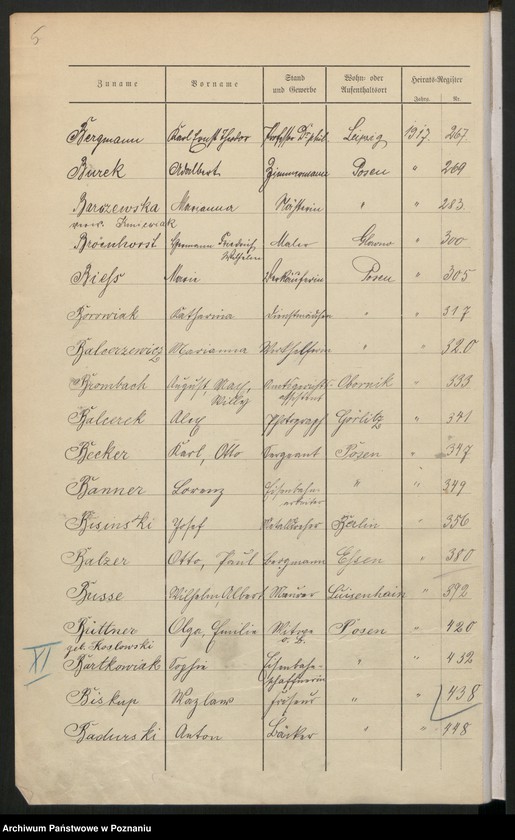 5
Zuname Vorname Stand und Gewerbe Wohn- oder Aufenthaltsort Heirats-Register
Jahrg. Nr.
Bergmann Karl Ernst Theodor Professor Dr. phil. Leipzig 1917. 267
Burek Adalbert Zimmermann Posen " 269
Barczewska Marianna Näherin " " 283
verw.
Bröenhorst Hermann Friedrich Maler " 300
Wilhelm
Biehs Marie Verkäuferin Posen " 305
Borowiak Katharina Dienstmädchen " " 317
Balcerzewicz Marianna " " 320
Brombach August, Max, Amtsgerichts- Obornik " 333
Willy assistent
Balcerek Alex Photograph Görlitz " 341
Becker Karl, Otto Sergeant Posen " 347
Banner Lorenz Eisenbahn- " " 349
arbeiter
Bisinski Josef Berlin " 356
Balzer Otto, Paul Bergmann Essen " 380
Busse Wilhelm, Albert Maurer Luisenhain " 392
Büttner Olga, Emilie Witwe Posen " 420
geb. Koslowski
XI
Bartkowiak Sophie Eisenbahn- " " 432
schaffnerin
Biskup Wazlaw Friseur " 438
Badurski Anton Bäcker " " 448
Archiwum Państwowe w Poznaniu